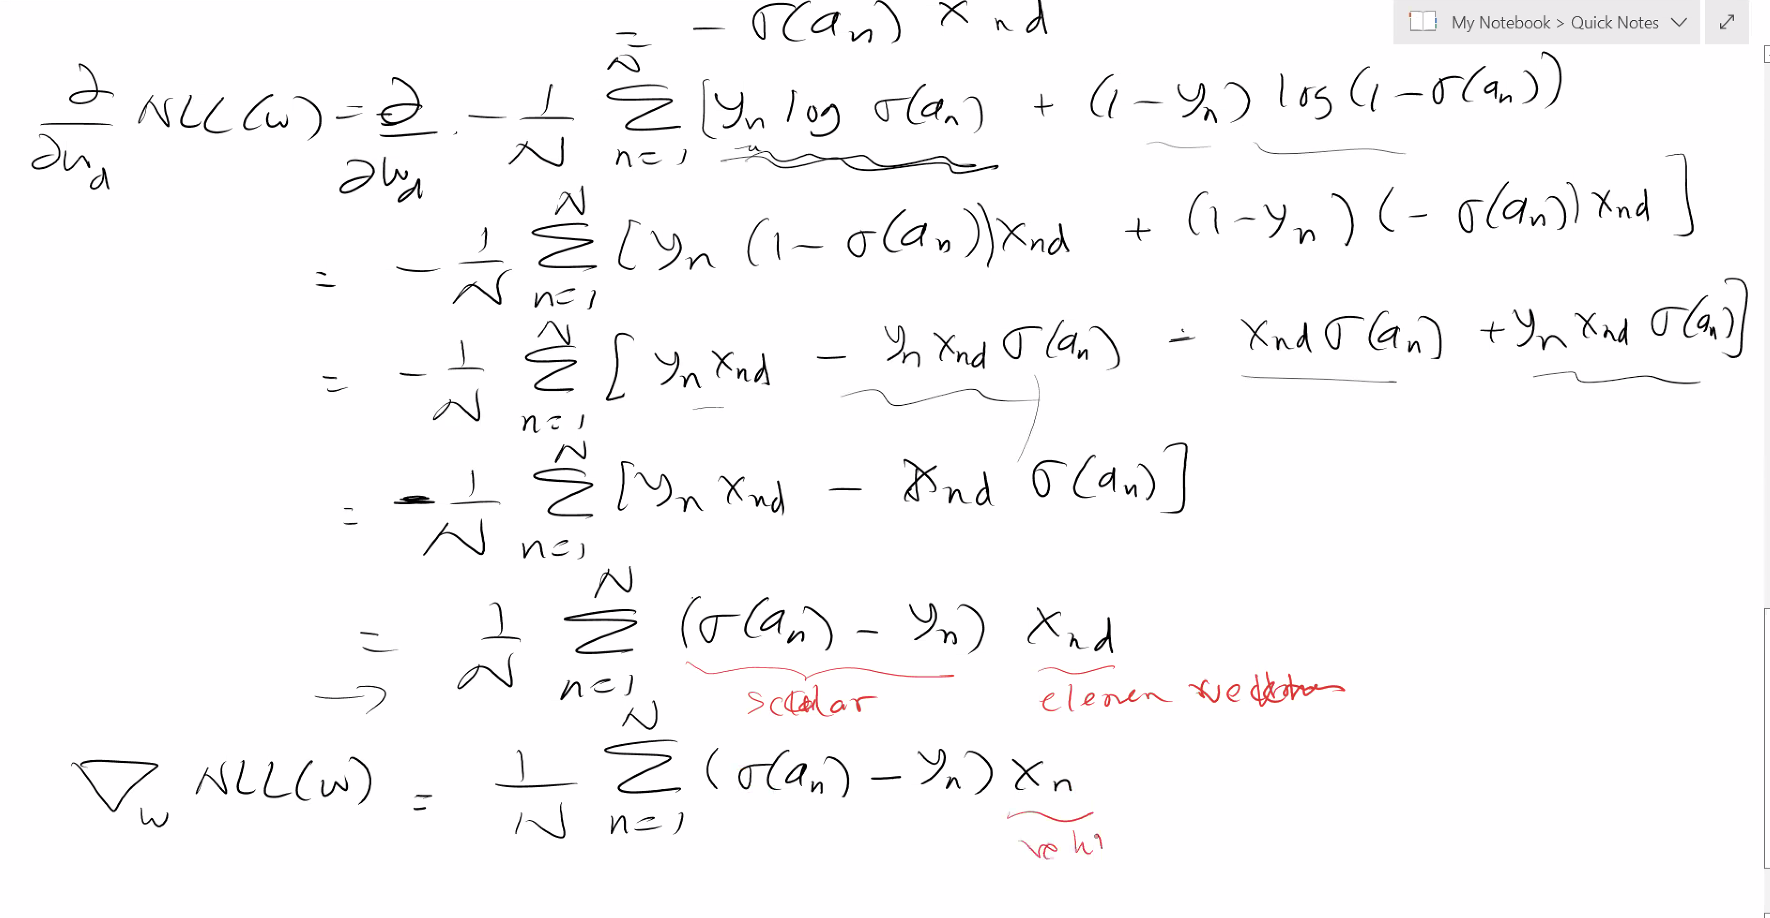 My Notebook > Quick Notes
= − σ(aₙ) xₙd
∂/∂w_d NLL(w) = ∂/∂w_d · −1/N Σ_{n=1}^{N} [yₙ log σ(aₙ) + (1−yₙ) log(1−σ(aₙ))
= −1/N Σ_{n=1}^{N} [yₙ (1−σ(aₙ))xₙd + (1−yₙ)(−σ(aₙ))xₙd]
= −1/N Σ_{n=1}^{N} [yₙ xₙd − yₙ xₙd σ(aₙ) − xₙd σ(aₙ) + yₙ xₙd σ(aₙ)]
= −1/N Σ_{n=1}^{N} [yₙ xₙd − xₙd σ(aₙ)]
= 1/N Σ_{n=1}^{N} (σ(aₙ) − yₙ) xₙd
→ scalar elemen
∇_w NLL(w) = 1/N Σ_{n=1}^{N} (σ(aₙ) − yₙ) xₙ